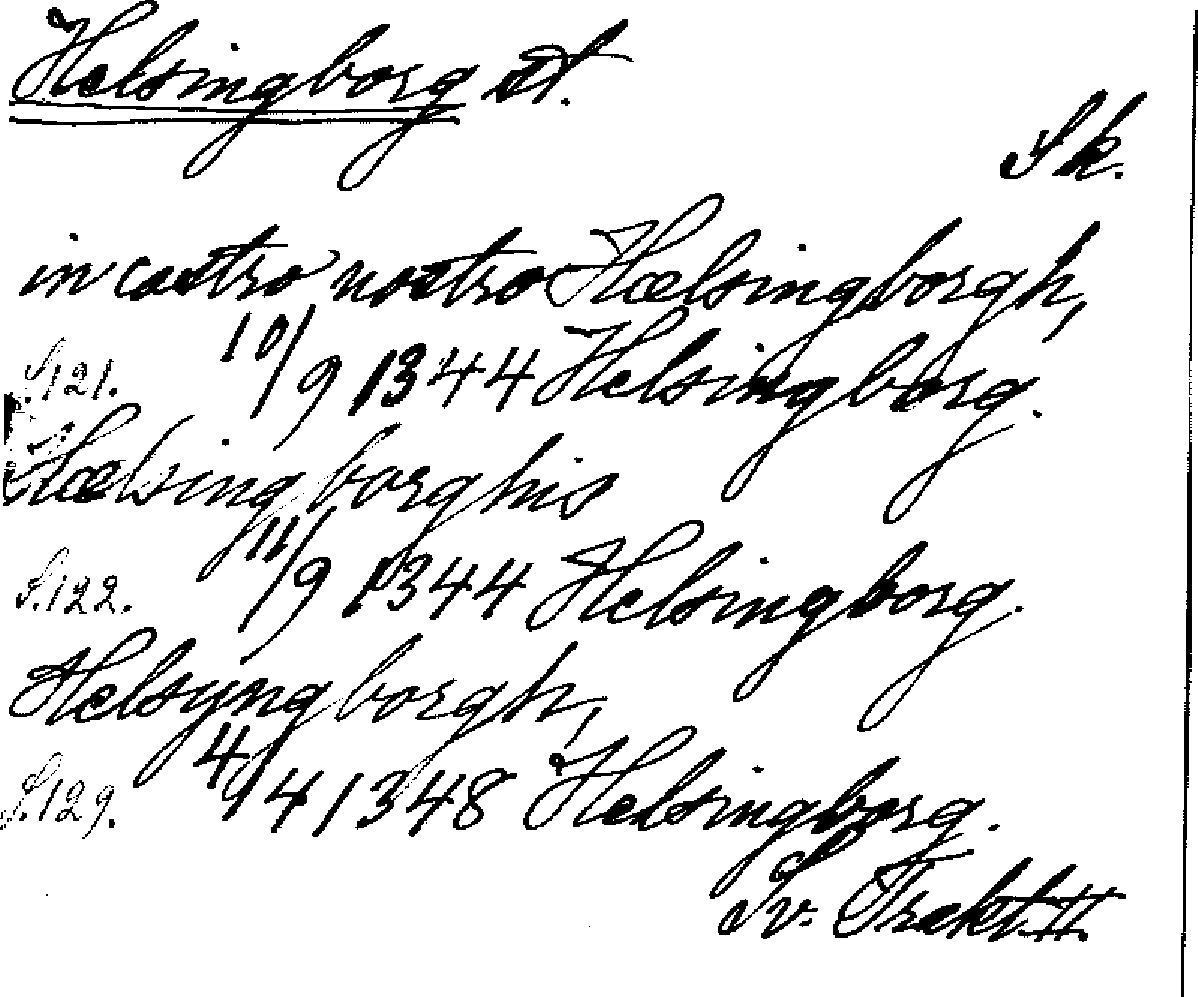 Helsingborg st.
Sk.
in castro nostro Hælsingborgh,
S.121. 10/9 1344 Helsingborg.
Hælsingborghis
S.122. 11/9 1344 Helsingborg.
Helsyngborgh,
S.129. 4/4 1348 Helsingborg.
Sv. Trakt. II.